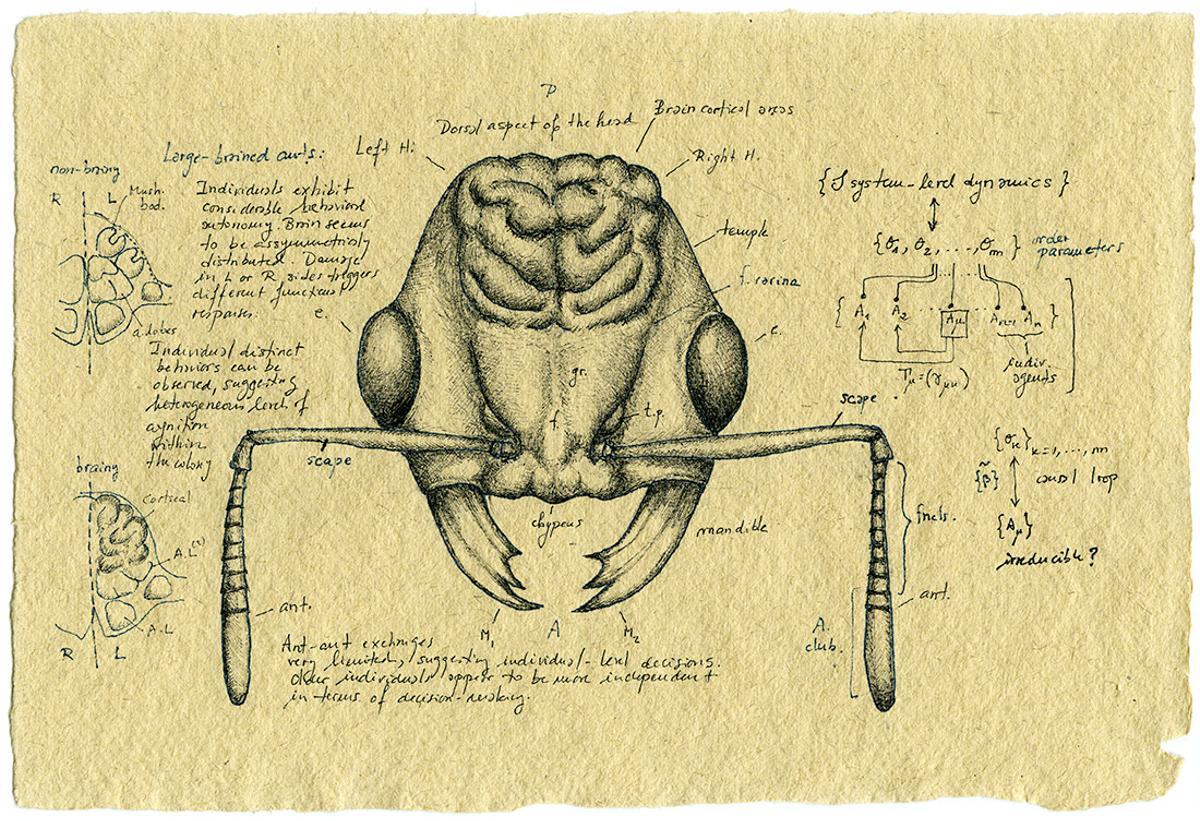 P
Dorsal aspect of the head
Brain cortical areas
Left H.
Right H.
Large-brained ants:
Individuals exhibit
considerable behavioral
autonomy. Brain seems
to be assymmetricly
distributed. Damage
in L or R sides triggers
different functional
responses.
non-brainy
R L
Mush.
bod.
a. lobes
e.
e.
temple
f. carina
gr.
f.
t.p.
Individual distinct
behaviors can be
observed, suggesting
heterogeneous levels of
cognition
within
the colony
brainy
cortical
A.L
A.L
R L
scape
scape
clypeus
mandible
ant.
ant.
M1
A
M2
A.
club.
Ant-ant exchanges
very limited, suggesting individual-level decisions.
Older individuals appear to be more independent
in terms of decision-making.
system-level dynamics }
{θ1, θ2, ..., θm} order
parameters
{ A1 A2 ... Aμ ... An-1 An }
indiv.
agents
{θk}k=1,...,m
{β̃} causal loop
{Aμ}
irreducible?